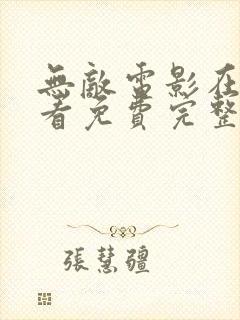 無敵雷影在
看免費完整
張慧疆